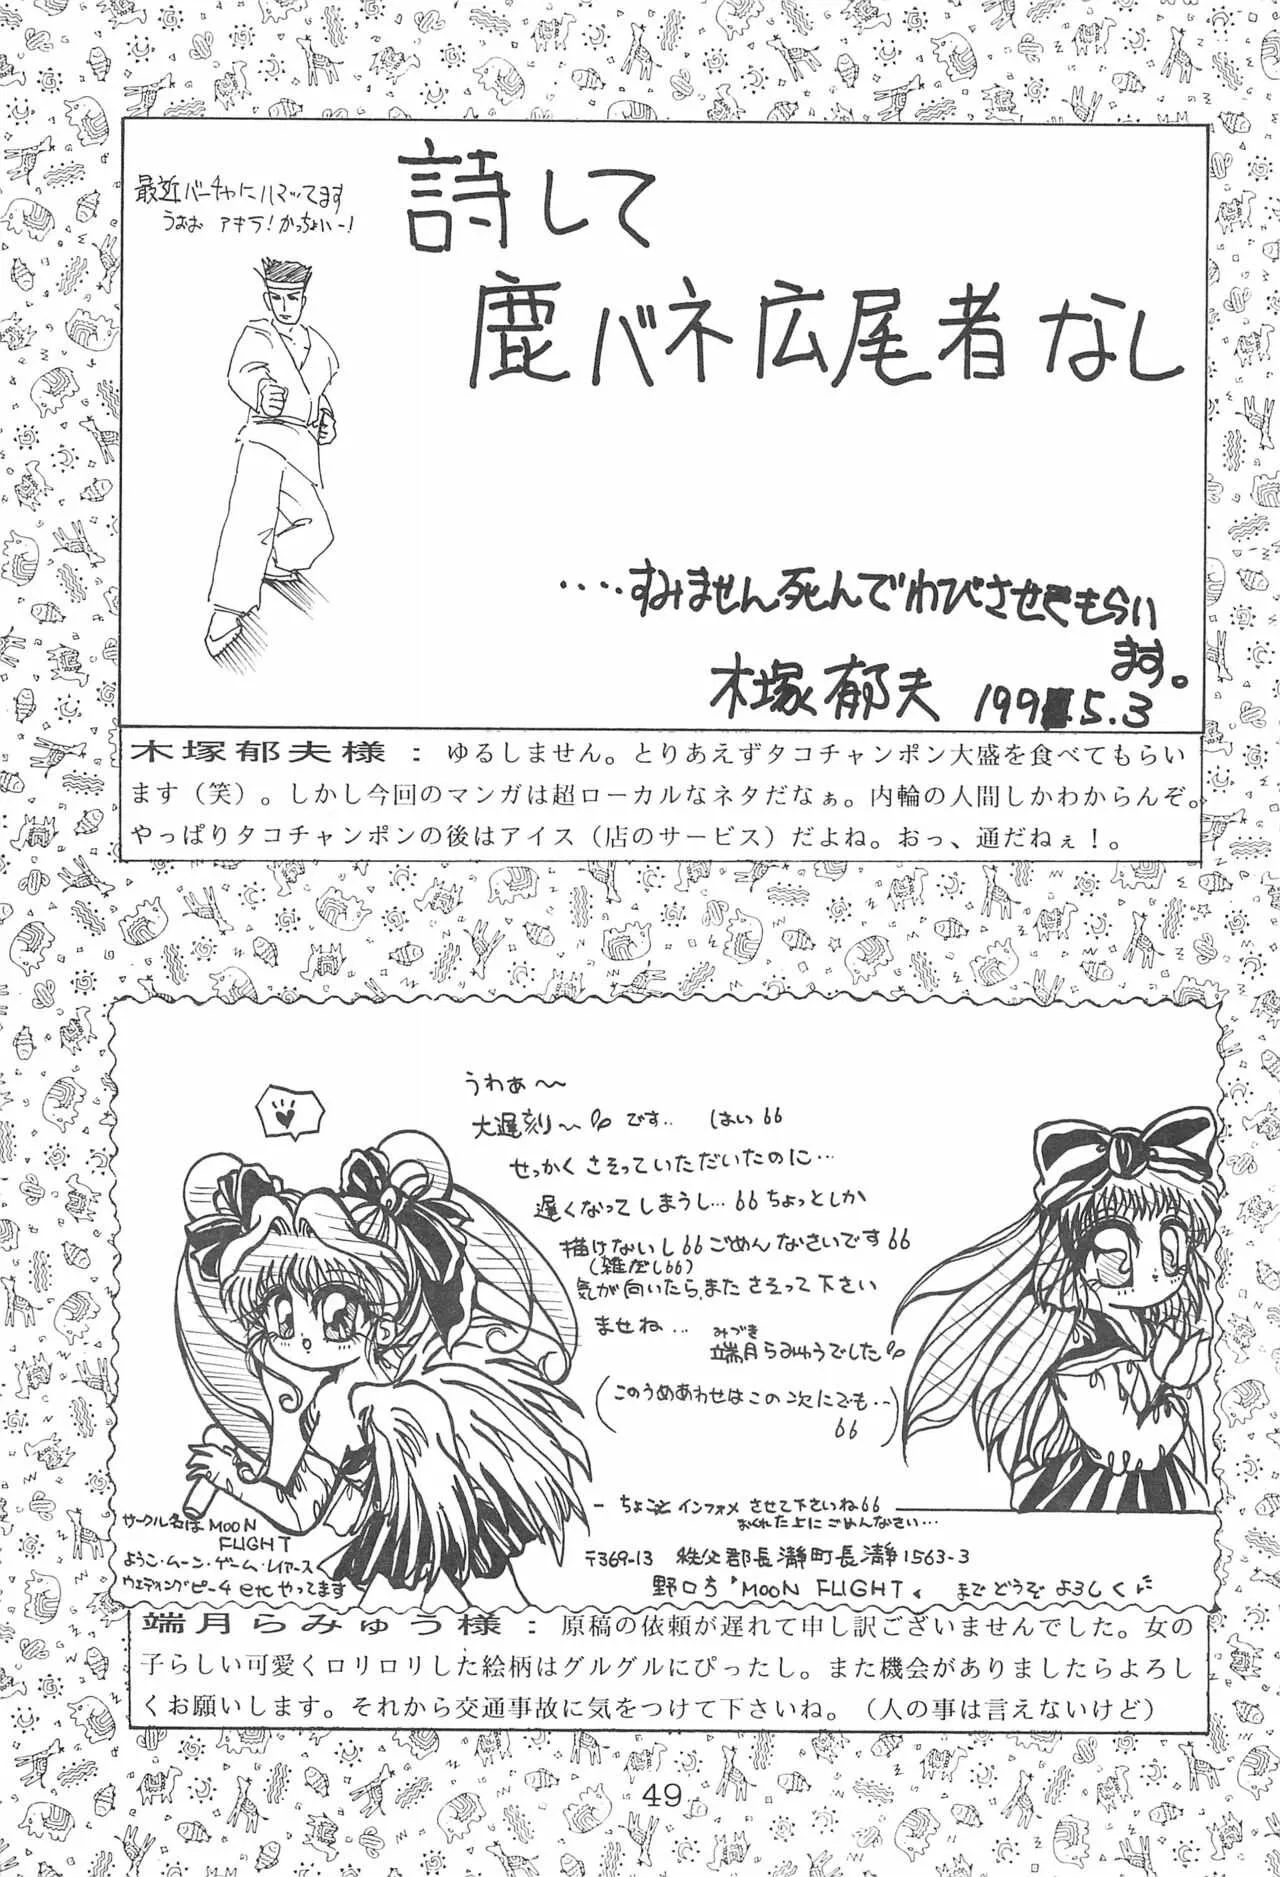 最近バーチャにハマッてます
うおお アキラ!かっちょいー!
詩して
鹿バネ広尾者なし
････すみません死んでわびさせてもらい
ます。
木塚郁夫 199 5.3
木塚郁夫様：ゆるしません。とりあえずタコチャンポン大盛を食べてもらい
ます（笑）。しかし今回のマンガは超ローカルなネタだなぁ。内輪の人間しかわからんぞ。
やっぱりタコチャンポンの後はアイス（店のサービス）だよね。おっ、通だねぇ！。
うわぁ〜
大遅刻〜です‥ はい
せっかくさそっていただいたのに…
遅くなってしまうし…ちょっとしか
描けないしごめんなさいです
(雑だし)
気が向いたら、またさそって下さい
ませね…
みづき
端月らみゅうでした
(このうめあわせはこの次にでも‥)
－ ちょこっとインフォメさせて下さいね
おくれた上にごめんなさい…
サークル名はMOON
FLIGHT
ようこ・ムーン・ゲーム・レイアース
ウェディングピーチ etcやってます
〒369-13 秩父郡長瀞町長瀞1563-3
野口方「MOON FLIGHT」 までどうぞよろしく
端月らみゅう様：原稿の依頼が遅れて申し訳ございませんでした。女の
子らしい可愛くロリロリした絵柄はグルグルにぴったし。また機会がありましたらよろし
くお願いします。それから交通事故に気をつけて下さいね。（人の事は言えないけど）
49